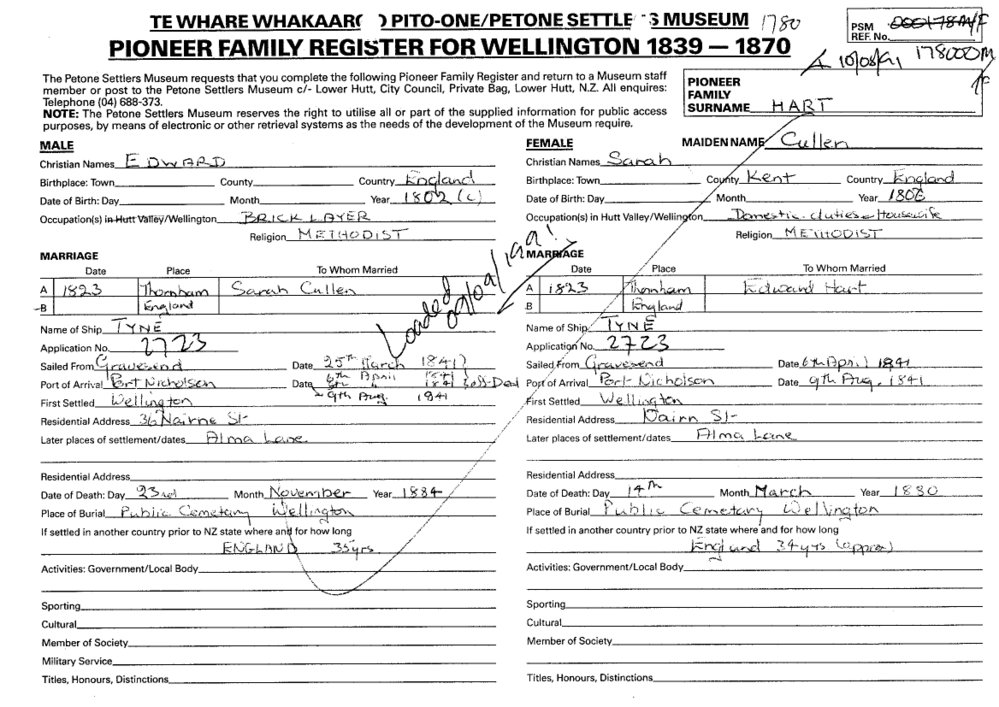 TE WHARE WHAKAAR( ) PITO-ONE/PETONE SETTLE S MUSEUM 1780
PIONEER FAMILY REGISTER FOR WELLINGTON 1839 — 1870
PSM
REF. No.
10/08/91 178000M
The Petone Settlers Museum requests that you complete the following Pioneer Family Register and return to a Museum staff
member or post to the Petone Settlers Museum c/- Lower Hutt, City Council, Private Bag, Lower Hutt, N.Z. All enquires:
Telephone (04) 688-373.
NOTE: The Petone Settlers Museum reserves the right to utilise all or part of the supplied information for public access
purposes, by means of electronic or other retrieval systems as the needs of the development of the Museum require.
PIONEER
FAMILY
SURNAME HART
MALE
Christian Names EDWARD
Birthplace: Town County Country England
Date of Birth: Day Month Year 1802 (c)
Occupation(s) in Hutt Valley/Wellington BRICKLAYER
Religion METHODIST
MARRIAGE
Date Place To Whom Married
A 1823 Thornham Sarah Cullen
B England
Name of Ship TYNE
Application No. 2723
Sailed From Gravesend Date 25th March 1841)
6th April 1841
Port of Arrival Port Nicholson Date
9th Aug. 1841
First Settled Wellington
Residential Address 36 Nairne St
Later places of settlement/dates Alma Lane
Residential Address
Date of Death: Day 23rd Month November Year 1884
Place of Burial Public Cemetary Wellington
If settled in another country prior to NZ state where and for how long
ENGLAND 35yrs
Activities: Government/Local Body
Sporting
Cultural
Member of Society
Military Service
Titles, Honours, Distinctions
Loaded
FEMALE MAIDEN NAME Cullen
Christian Names Sarah
Birthplace: Town County Kent Country England
Date of Birth: Day Month Year 1806
Occupation(s) in Hutt Valley/Wellington Domestic duties - Housewife
Religion METHODIST
MARRIAGE
Date Place To Whom Married
A 1823 Thornham Edward Hart
B England
Name of Ship TYNE
Application No. 2723
Sailed From Gravesend Date 6th April 1841
Port of Arrival Port Nicholson Date 9th Aug. 1841
First Settled Wellington
Residential Address Nairn St
Later places of settlement/dates Alma Lane
Residential Address
Date of Death: Day 14th Month March Year 1880
Place of Burial Public Cemetary Wellington
If settled in another country prior to NZ state where and for how long
England 34yrs (approx)
Activities: Government/Local Body
Sporting
Cultural
Member of Society
Titles, Honours, Distinctions